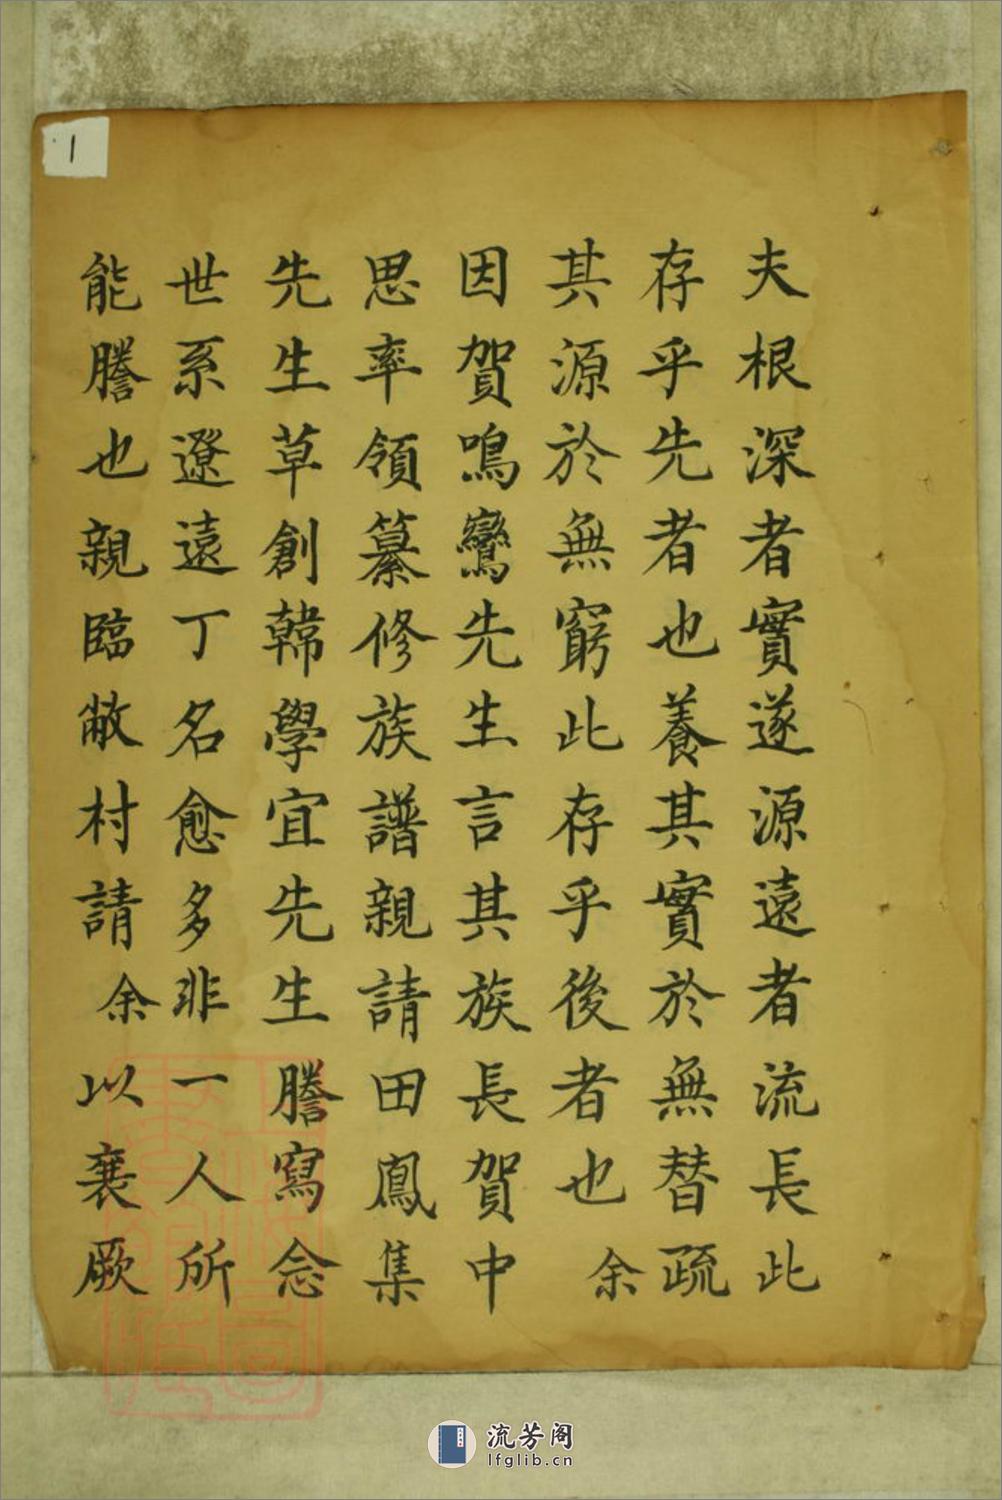 夫根深者實遂源遠者流長此
存乎先者也養其實於無替疏
其源於無窮此存乎後者也余
因賀鳴鸞先生言其族長賀中
思率領纂修族譜親請田鳳集
先生草創韓學宜先生謄寫念
世系遼遠丁名愈多非一人所
能謄也親臨敝村請余以襄厥
1
流芳阁
lfglib.cn